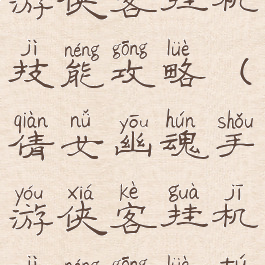 游侠客挂机
jì néng gōng lüè
技能攻略（
qiàn nǚ yōu hún shǒu
倩女幽魂手
yóu xiá kè guà jī
游侠客挂机
jì néng gōng lüè